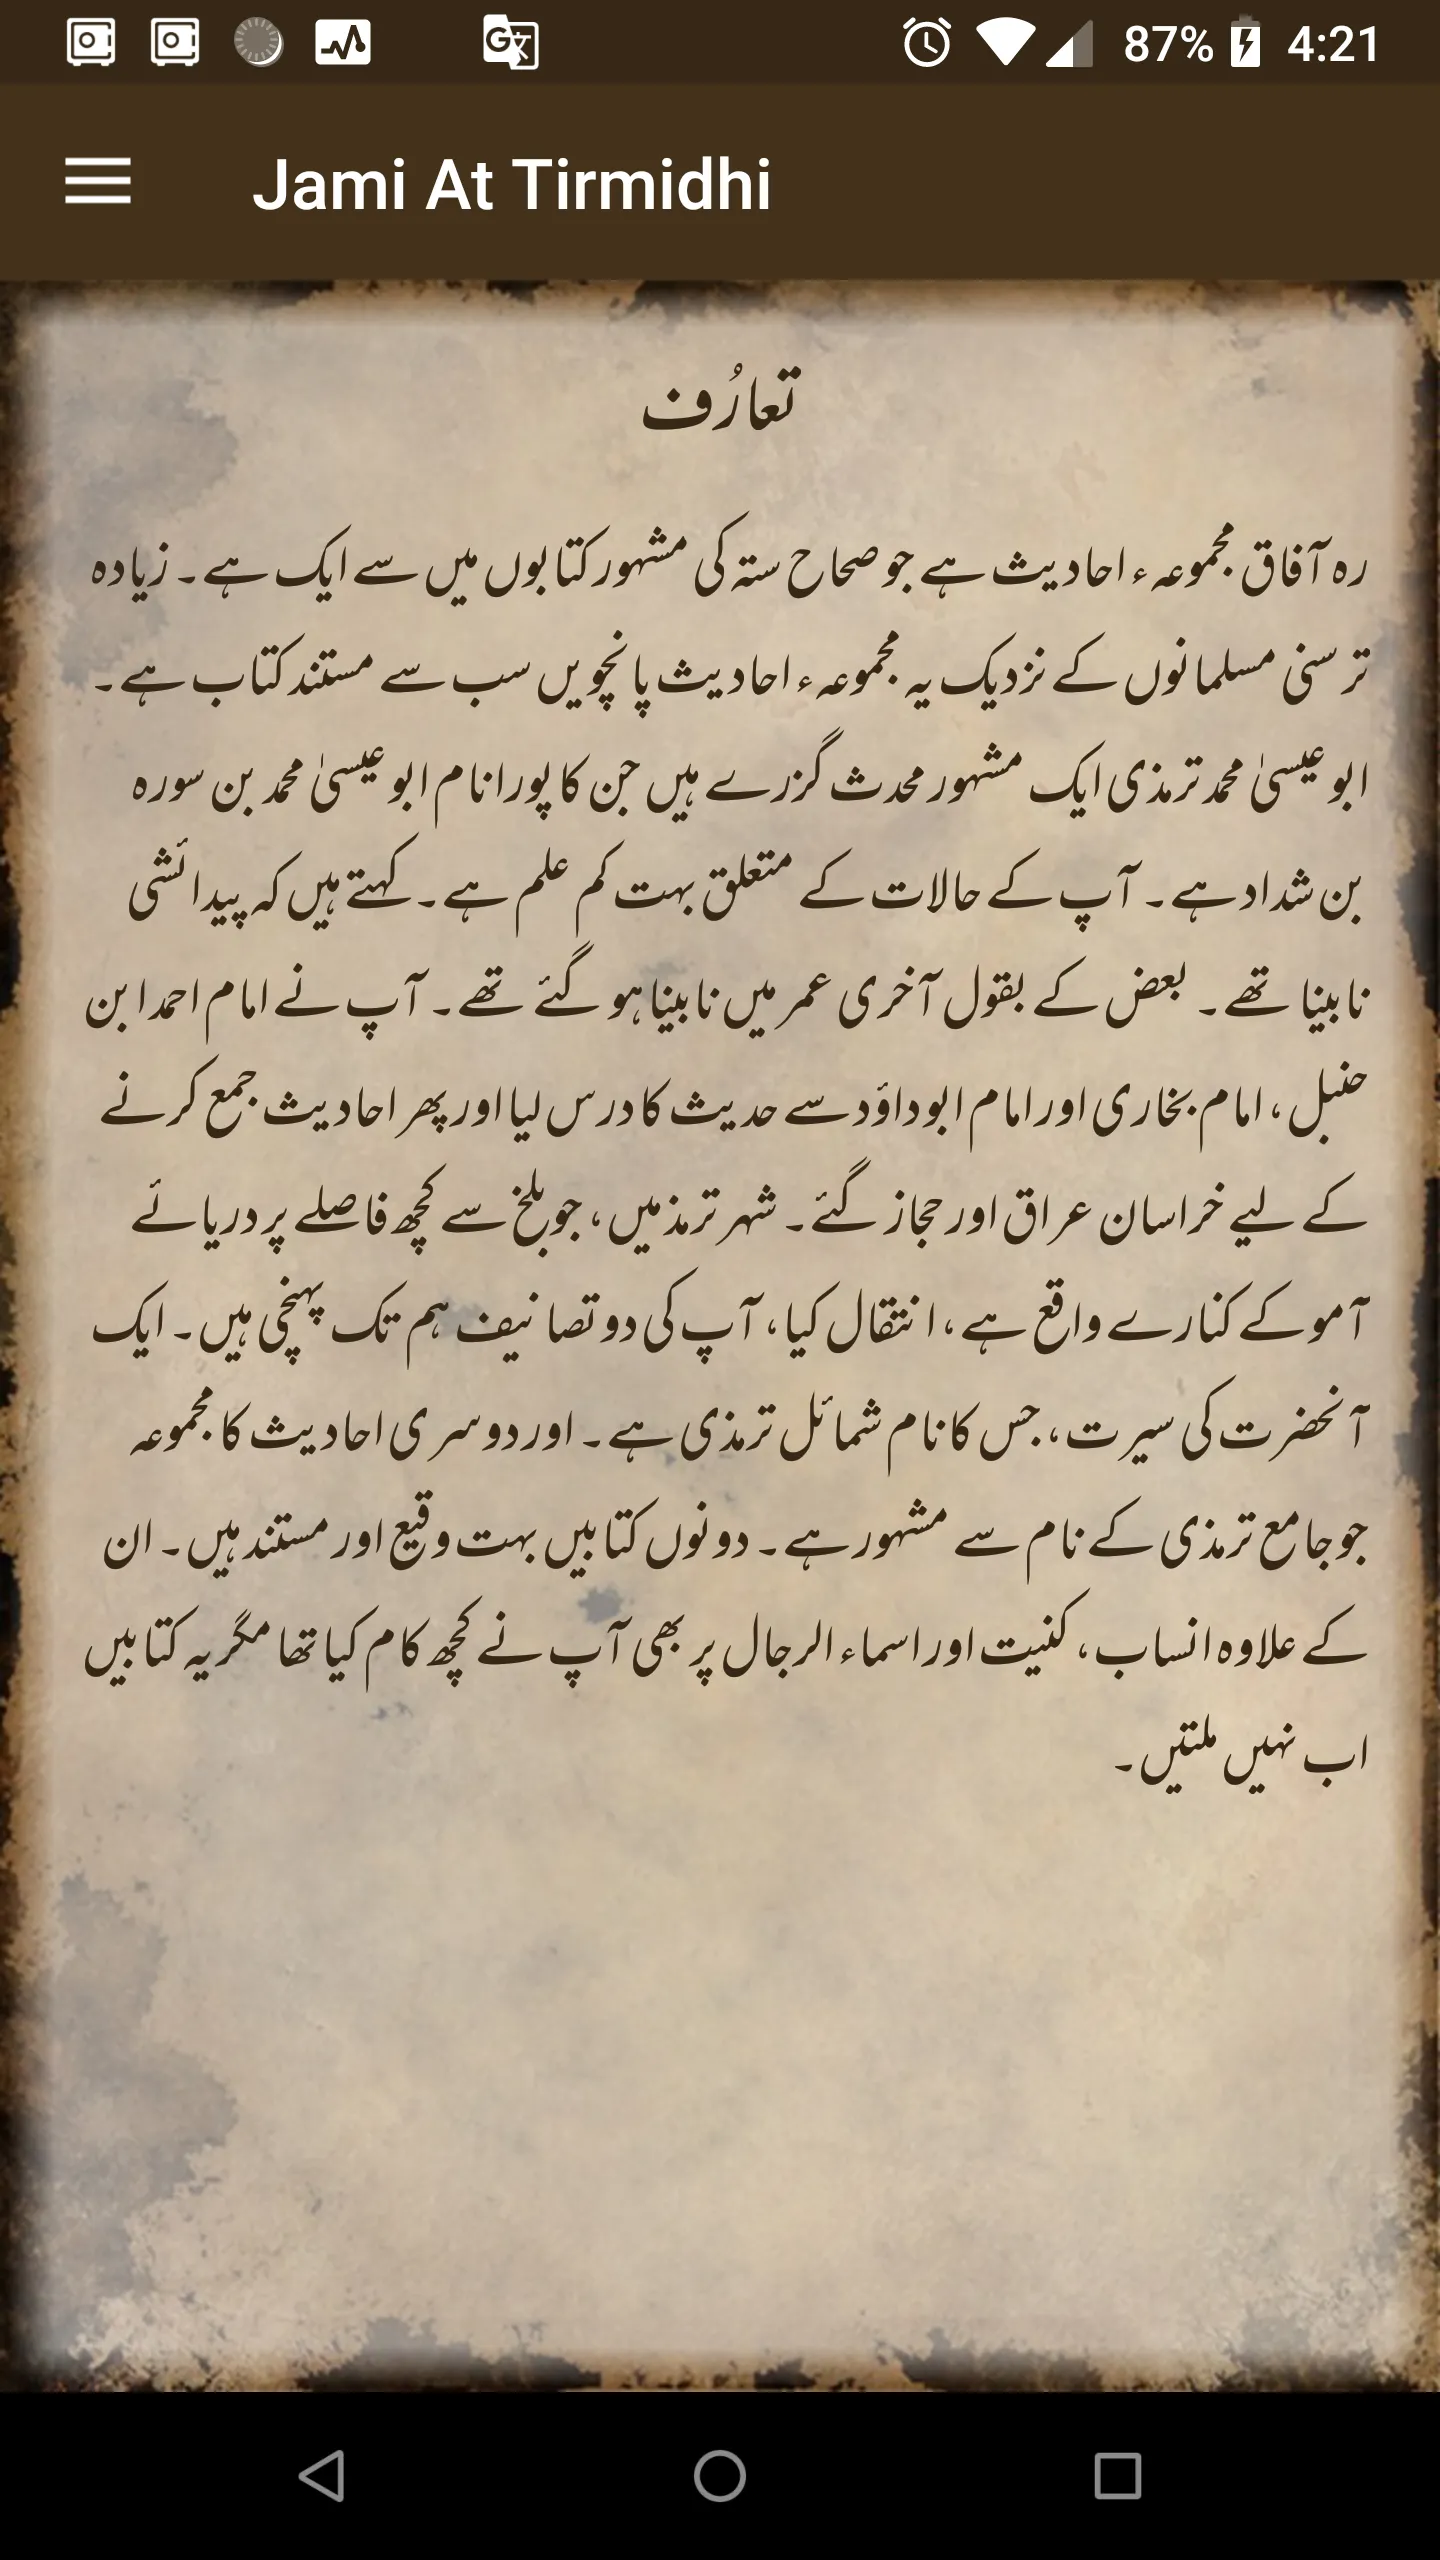 87% 4:21
Jami At Tirmidhi
تعارُف
رہ آفاق مجموعہء احادیث ہے جو صحاح ستہ کی مشہور کتابوں میں سے ایک ہے۔ زیادہ
تر سنی مسلمانوں کے نزدیک یہ مجموعہء احادیث پانچویں سب سے مستند کتاب ہے۔
ابو عیسیٰ محمد ترمذی ایک مشہور محدث گزرے ہیں جن کا پورا نام ابو عیسیٰ محمد بن سورہ
بن شداد ہے۔ آپ کے حالات کے متعلق بہت کم علم ہے۔ کہتے ہیں کہ پیدائشی
نابینا تھے۔ بعض کے بقول آخری عمر میں نابینا ہو گئے تھے۔ آپ نے امام احمد ابن
حنبل، امام بخاری اور امام ابو داؤد سے حدیث کا درس لیا اور پھر احادیث جمع کرنے
کے لیے خراسان عراق اور حجاز گئے۔ شہر ترمذ میں، جو بلخ سے کچھ فاصلے پر دریائے
آمو کے کنارے واقع ہے، انتقال کیا، آپ کی دو تصانیف ہم تک پہنچی ہیں۔ ایک
آنحضرت کی سیرت، جس کا نام شمائل ترمذی ہے۔ اور دوسری احادیث کا مجموعہ
جو جامع ترمذی کے نام سے مشہور ہے۔ دونوں کتابیں بہت وقیع اور مستند ہیں۔ ان
کے علاوہ انساب، کنیت اور اسماء الرجال پر بھی آپ نے کچھ کام کیا تھا مگر یہ کتابیں
اب نہیں ملتیں۔